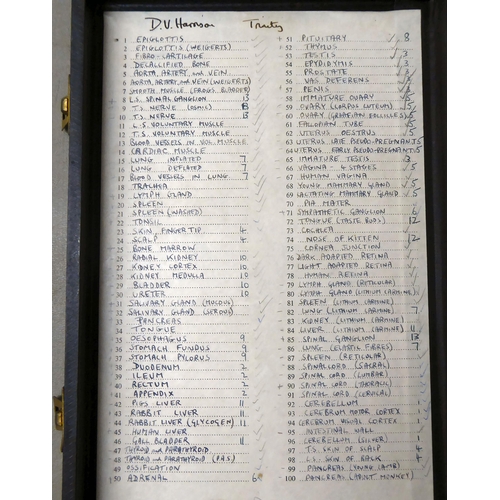 D.V. Harrison Trinity
1 EPIGLOTTIS
2 EPIGLOTTIS (WEIGERTS)
3 FIBRO-CARTILAGE
4 DECALCIFIED BONE
5 AORTA, ARTERY and VEIN
6 AORTA, ARTERY and VEIN (WEIGERTS)
7 SMOOTH MUSCLE (FROGS BLADDER)
8 L.S. SPINAL GANGLION 13
9 T.S. NERVE (OSMIC) 13
10 T.S. NERVE 13
11 L.S. VOLUNTARY MUSCLE
12 T.S. VOLUNTARY MUSCLE
13 BLOOD VESSELS IN VOL. MUSCLE
14 CARDIAC MUSCLE
15 LUNG INFLATED 7
16 LUNG DEFLATED 7
17 BLOOD VESSELS IN LUNG 7
18 TRACHEA
19 LYMPH GLAND
20 SPLEEN
21 SPLEEN (WASHED)
22 TONSIL
23 SKIN FINGERTIP 4
24 SCALP 4
25 BONE MARROW
26 RADIAL KIDNEY 10
27 KIDNEY CORTEX 10
28 KIDNEY MEDULLA 10
29 BLADDER 10
30 URETER 10
31 SALIVARY GLAND (MUCOUS)
32 SALIVARY GLAND (SEROUS)
33 PANCREAS
34 TONGUE
35 OESOPHAGUS 9
36 STOMACH FUNDUS 9
37 STOMACH PYLORUS 9
38 DUODENUM 2
39 ILEUM 2
40 RECTUM 2
41 APPENDIX 2
42 PIGS LIVER 11
43 RABBIT LIVER 11
44 RABBIT LIVER (GLYCOGEN) 11
45 HUMAN LIVER
46 GALL BLADDER 11
47 THYROID and PARATHYROID
48 THYROID and PARATHYROID (P.A.S.)
49 OSSIFICATION
50 ADRENAL 6
51 PITUITARY 8
52 THYMUS
53 TESTIS 3
54 EPYDIDYMIS 3
55 PROSTATE 3
56 VAS DEFERENS 3
57 PENIS 3
58 IMMATURE OVARY 5
59 OVARY (CORPUS LUTEUM) 5
60 OVARY (GRAAFIAN FOLLICLES) 5
61 FALLOPIAN TUBE 5
62 UTERUS OESTRUS 5
63 UTERUS LATE PSEUDO-PREGNANT 5
64 UTERUS EARLY PSEUDO-PREGNANT 5
65 IMMATURE TESTIS 3
66 VAGINA - 4 STAGES 5
67 HUMAN VAGINA
68 YOUNG MAMMARY GLAND 5
69 LACTATING MAMMARY GLAND 5
70 PIA MATER
71 SYMPATHETIC GANGLION 6
72 TONGUE (TASTE BUDS) 12
73 COCHLEA
74 NOSE OF KITTEN 12
75 CORNEA JUNCTION
76 DARK ADAPTED RETINA
77 LIGHT ADAPTED RETINA
78 HUMAN RETINA
79 LYMPH GLAND (RETICULAR)
80 LYMPH GLAND (LITHIUM CARMINE)
81 SPLEEN (LITHIUM CARMINE)
82 LUNG (LITHIUM CARMINE) 7
83 KIDNEY (LITHIUM CARMINE)
84 LIVER (LITHIUM CARMINE) 11
85 SPINAL GANGLION 13
86 LUNG (ELASTIC FIBRES) 7
87 SPLEEN (RETICULAR)
88 SPINAL CORD (SACRAL)
89 SPINAL CORD (LUMBAR)
90 SPINAL CORD (THORACIC)
91 SPINAL CORD (CERVICAL)
92 CEREBELLUM
93 CEREBRUM MOTOR CORTEX 1
94 CEREBRUM VISUAL CORTEX 1
95 INTESTINAL WALL
96 CEREBELLUM (SILVER) 1
97 T.S. SKIN OF SCALP 4
98 L.S. SKIN OF BACK 4
99 PANCREAS (YOUNG)
100 PANCREAS (ADULT MONKEY)